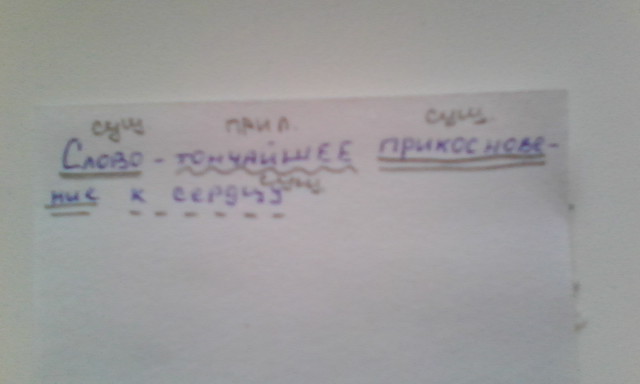 сущ прил. сущ.
Слово - тончайшее прикоснове-
сущ
ние к сердцу